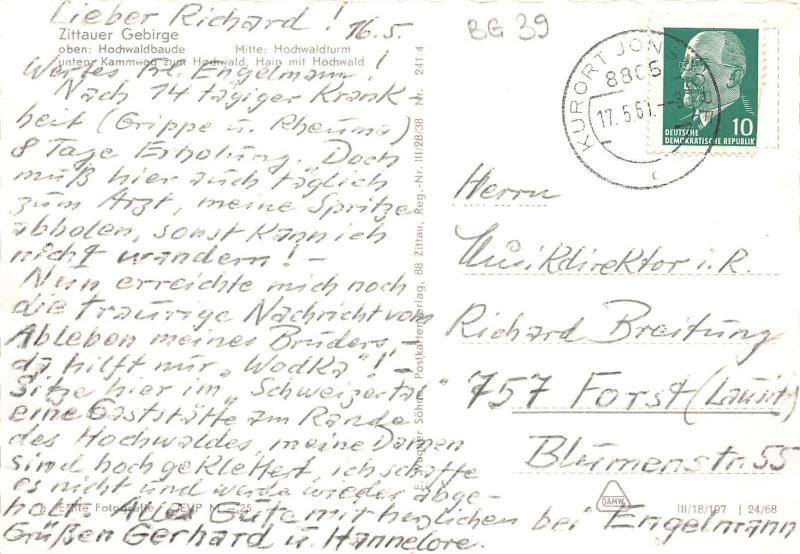 Lieber Richard! 16.5.
Zittauer Gebirge
oben: Hochwaldbaude Mitte: Hochwaldturm
unten: Kammweg zum Hochwald, Hain mit Hochwald
Wertes Frl. Engelmann!
Nach 14 tägiger Krank
heit (Grippe u. Rheuma)
8 Tage Erholung. Doch
muß hier auch täglich
zum Arzt, meine Spritze
abholen, sonst kann ich
nicht wandern! –
Nun erreichte mich noch
die traurige Nachricht vom
Ableben meines Bruders –
da hilft nur "Wodka"! –
Sitze hier im "Schweizertal"
eine Gaststätte am Rande
des Hochwaldes, meine Damen
sind hochgeklettert, ich schaffe
es nicht und werde wieder abge-
holt. Alles Gute mit herzlichen
Grüßen Gerhard u. Hannelore.
Echte Fotografie GEVP M –.25
Postkartenverlag, 88 Zittau, Reg.-Nr. III/28/38 Nr. 241 4
BG 39
KURORT JONS
880
17.5.6
10
DEUTSCHE
DEMOKRATISCHE REPUBLIK
c
Herrn
Musikdirektor i.R.
Richard Breitung
757 Forst (Lausitz)
Blumenstr. 55
bei Engelmann
DAMW
III/18/197 J 24/68